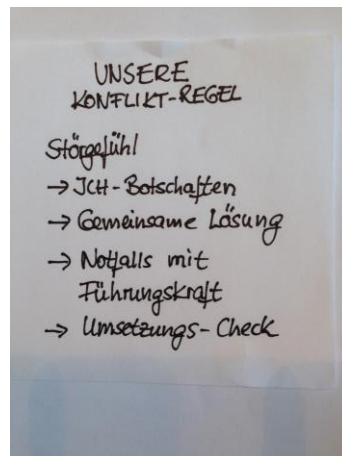 UNSERE
KONFLIKT-REGEL
Störgefühl
→ ICH-Botschaften
→ Gemeinsame Lösung
→ Notfalls mit
Führungskraft
→ Umsetzungs-Check